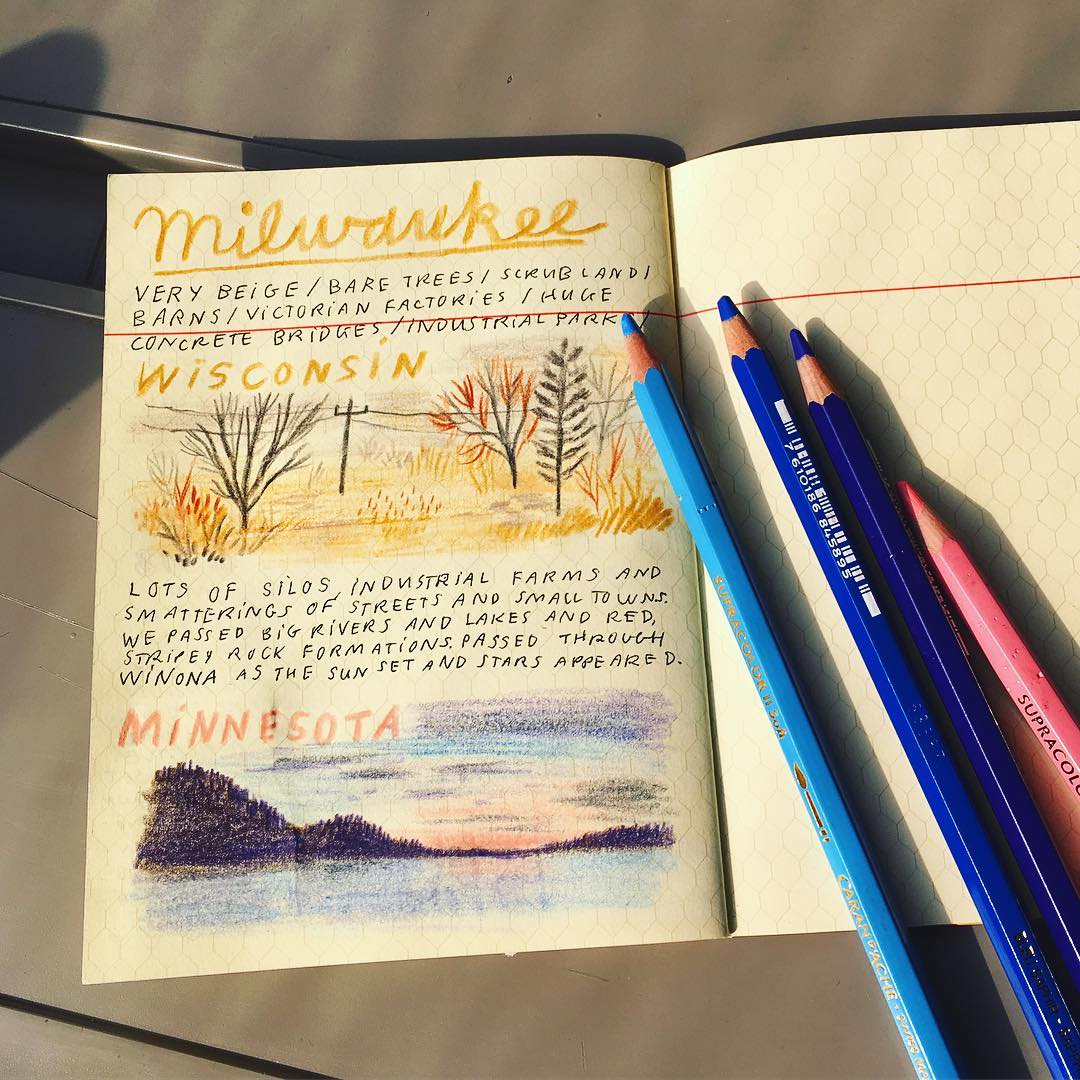 Milwaukee
VERY BEIGE / BARE TREES / SCRUBLAND /
BARNS / VICTORIAN FACTORIES / HUGE
CONCRETE BRIDGES / INDUSTRIAL PARK
WISCONSIN
LOTS OF SILOS, INDUSTRIAL FARMS AND
SMATTERINGS OF STREETS AND SMALL TOWNS.
WE PASSED BIG RIVERS AND LAKES AND RED,
STRIPEY ROCK FORMATIONS. PASSED THROUGH
WINONA AS THE SUN SET AND STARS APPEARED.
MINNESOTA
SUPRACOLOR II Soft
CARAN D'ACHE
7 610186 845895
SUPRACOLO